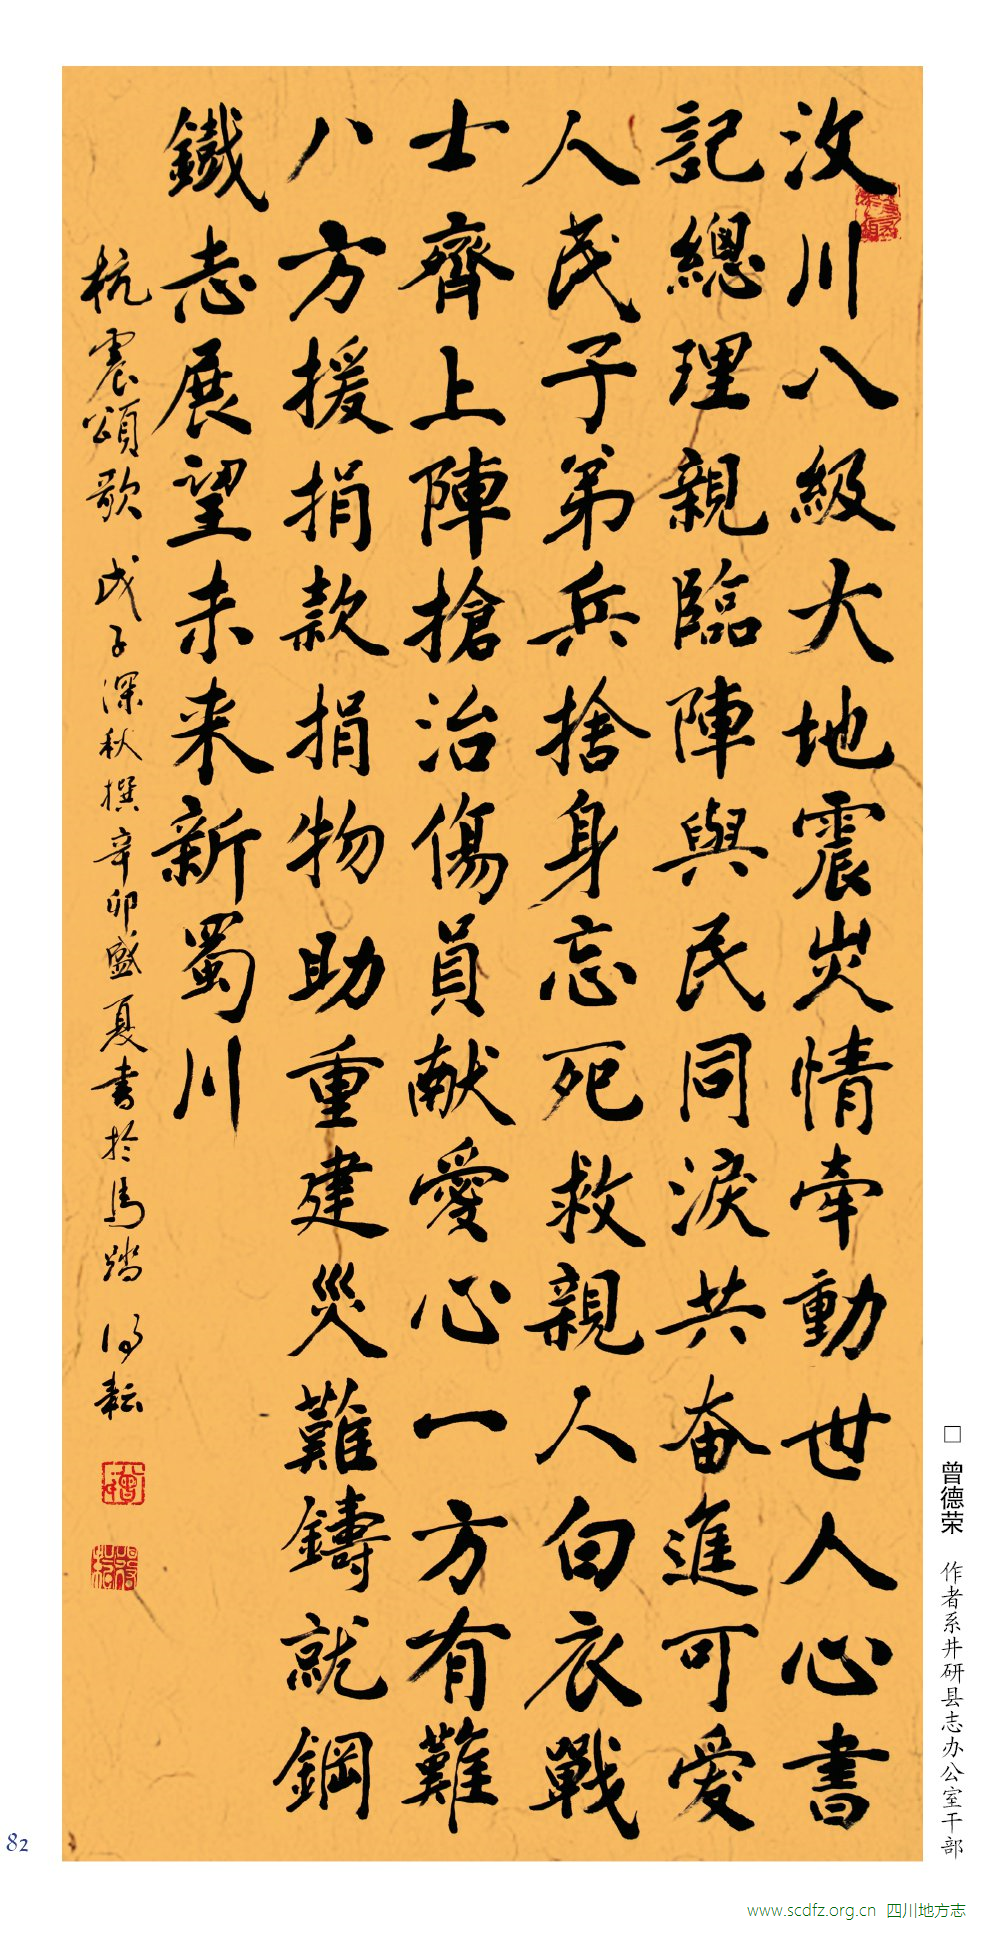 汶川八級大地震災情牽動世人心書
記總理親臨陣與民同淚共奋進可愛
人民子弟兵捨身忘死救親人白衣戰
士齊上陣搶治傷員献愛心一方有難
八方援捐款捐物助重建災難鑄就鋼
鐵志展望未来新蜀川
杭震頌歌 戊子深秋撰辛卯盛夏書於馬踏 耘
□ 曾德荣 作者系井研县志办公室干部
82
www.scdfz.org.cn 四川地方志